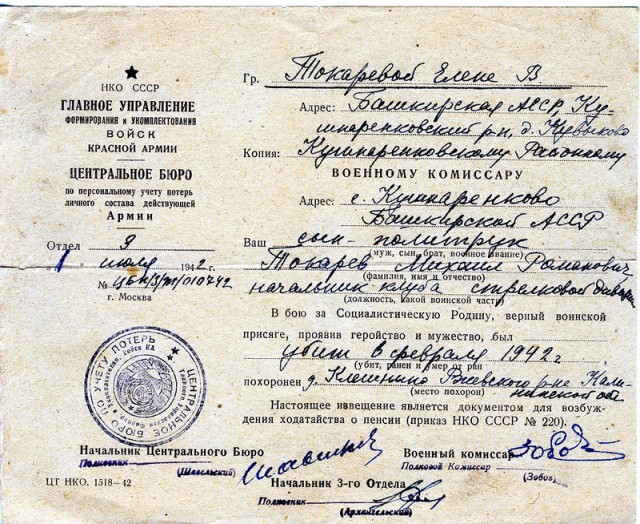 НКО СССР
ГЛАВНОЕ УПРАВЛЕНИЕ
ФОРМИРОВАНИЯ и УКОМПЛЕКТОВАНИЯ
ВОЙСК
КРАСНОЙ АРМИИ
ЦЕНТРАЛЬНОЕ БЮРО
по персональному учету потерь
личного состава действующей
Армии
Отдел 3
1 июля 1942 г.
г. Москва
Гр. Токаревой Елене В
Адрес: Башкирская АССР, Ку-
шнаренковский р-н, д. Кувыково
Копия: Кушнаренковскому Районному
ВОЕННОМУ КОМИССАРУ
Адрес: с. Кушнаренково
Башкирской АССР
Ваш сын - политрук
(муж, сын, брат, военное звание)
Токарев Михаил Романович
(фамилия, имя и отчество)
начальник клуба стрелковой
(должность, какой воинской части)
В бою за Социалистическую Родину, верный воинской
присяге, проявив геройство и мужество, был
убит в феврале 1942 г
(убит, ранен и умер от ран)
похоронен д. Клешнино Ржевского р-на Кали-
нинской об
(место похорон)
Настоящее извещение является документом для возбуж-
дения ходатайства о пенсии (приказ НКО СССР № 220).
ЦЕНТРАЛЬНОЕ БЮРО ПО УЧЕТУ ПОТЕРЬ
Начальник Центрального Бюро
Полковник
(Шавельский)
Военный комиссар
Полковой Комиссар
(Зобов)
Начальник 3-го Отдела
Полковник
(Архангельский)
ЦТ НКО. 1518—42